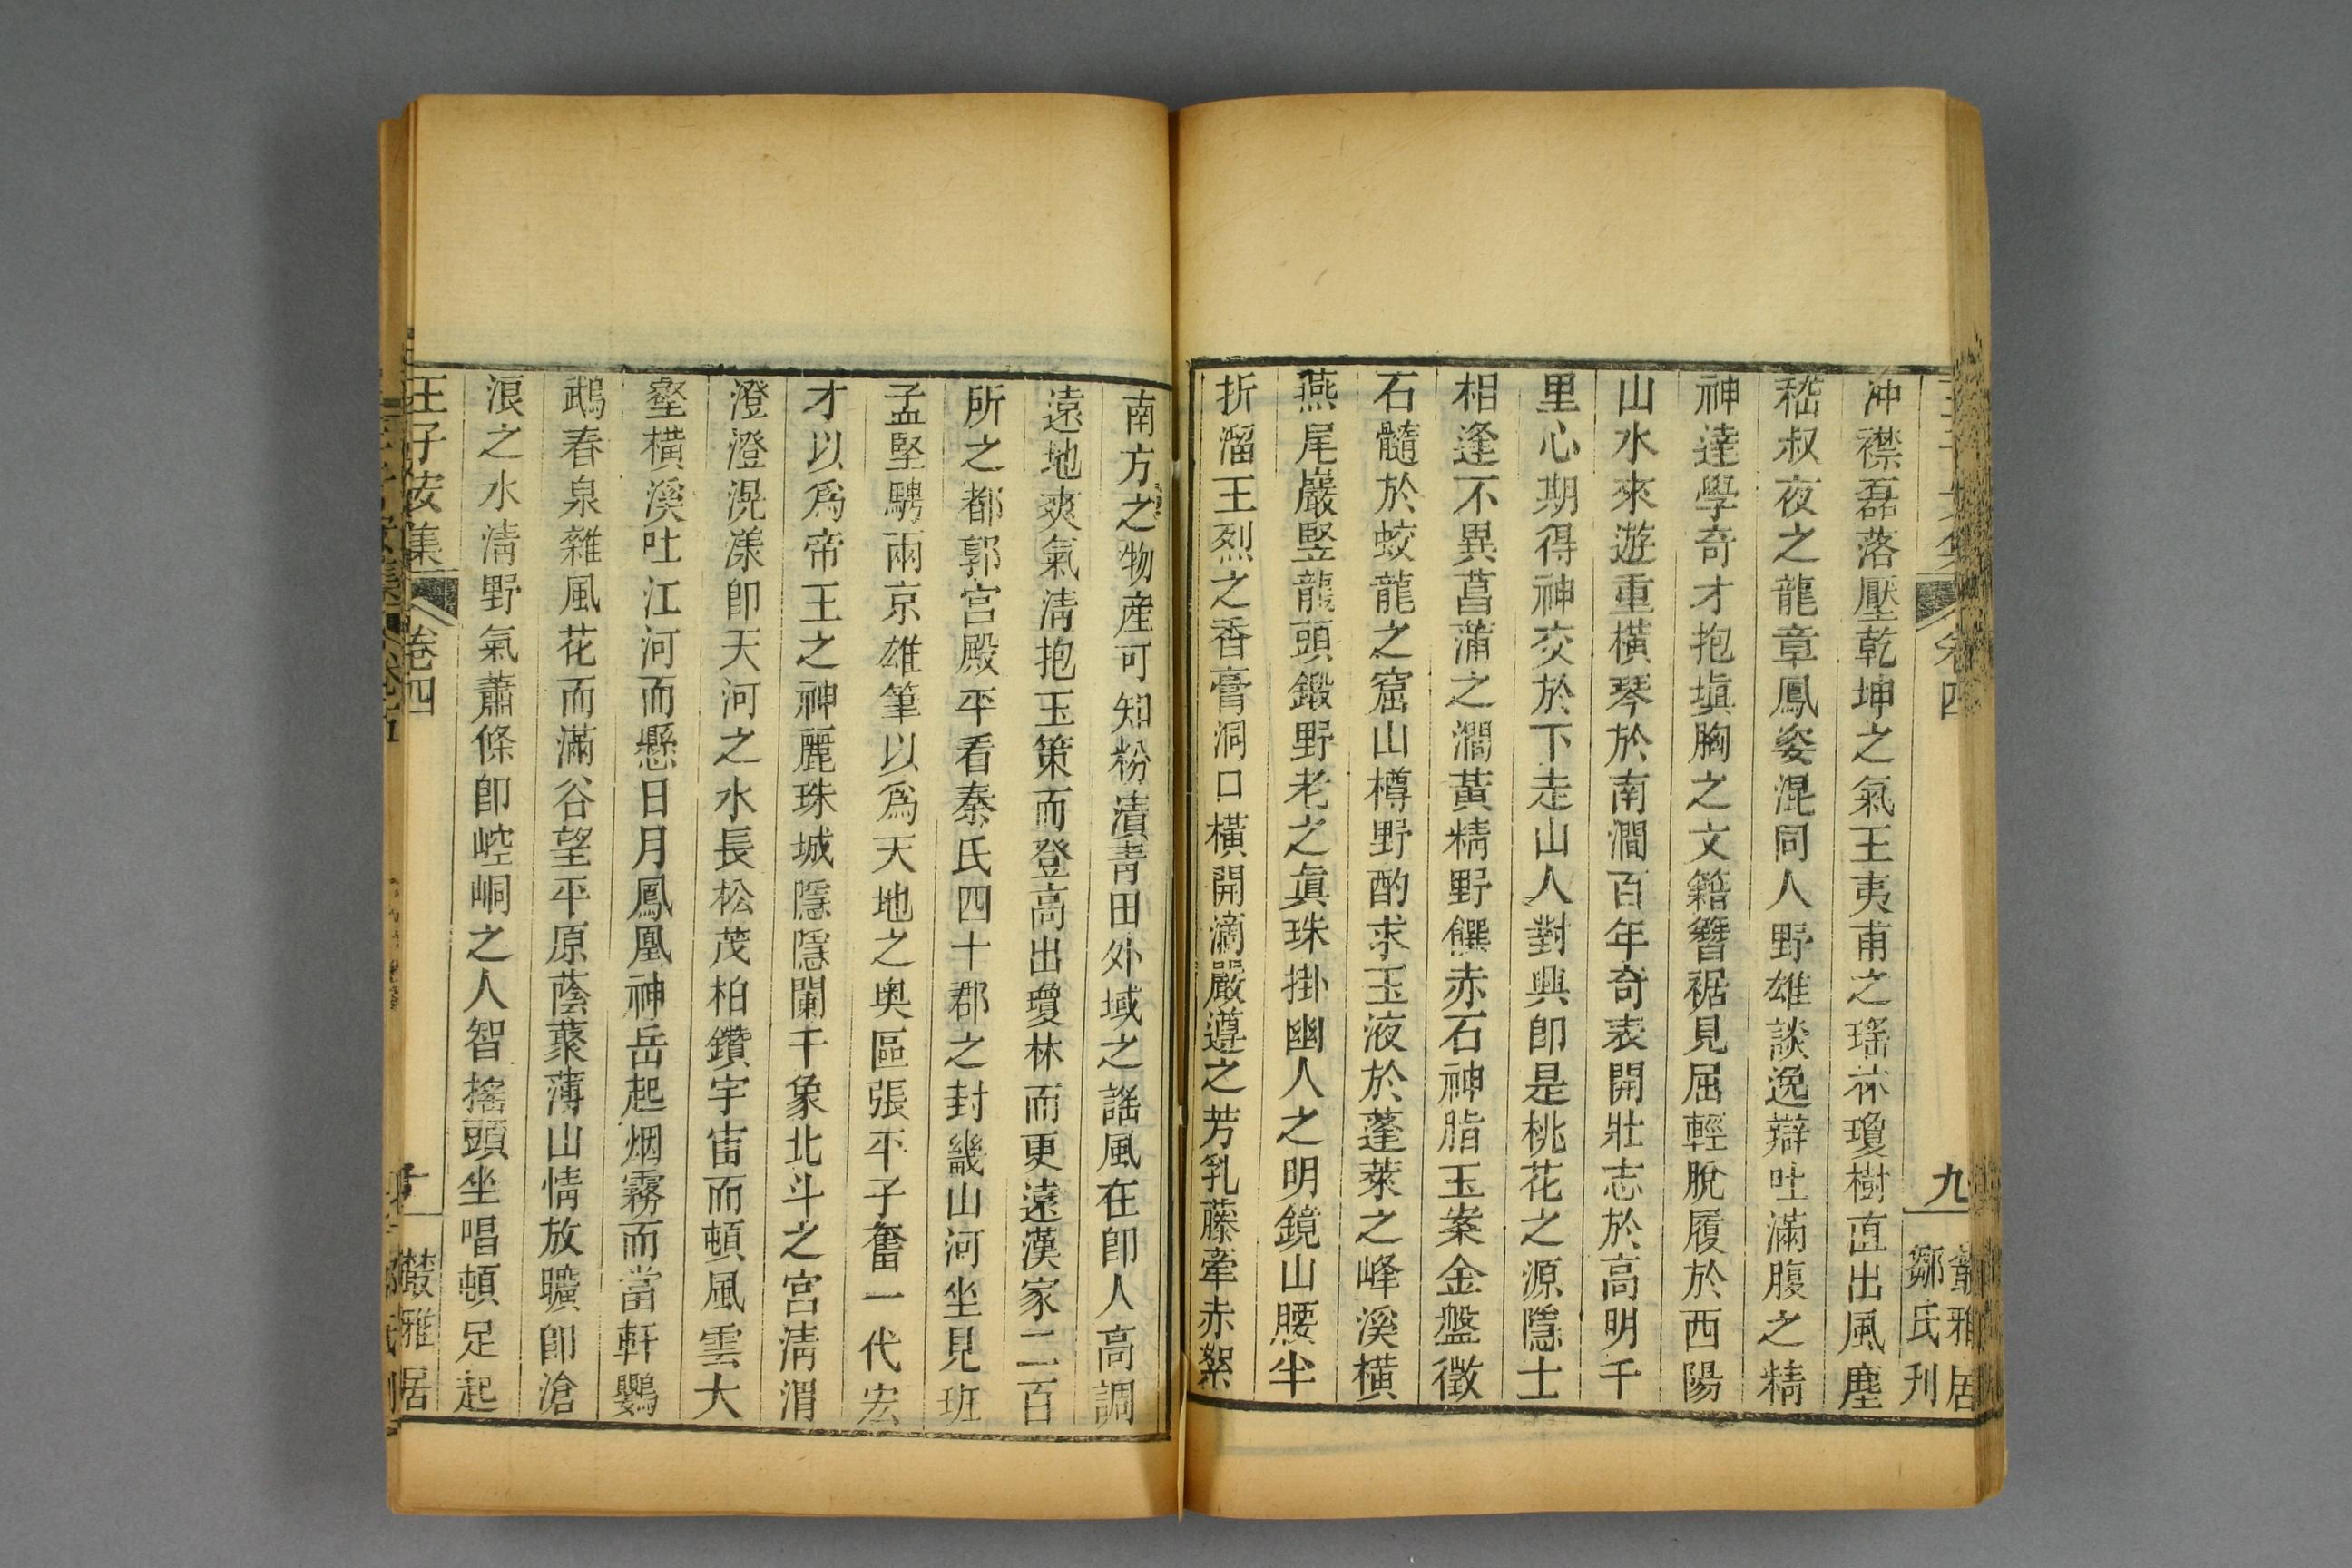 卷四
九
叢雅居
鄒氏刊
冲襟磊落壓乾坤之氣王夷甫之瑶林瓊樹直出風塵
嵇叔夜之龍章鳳姿混同人野雄談逸辯吐滿腹之精
神達學奇才抱塡胸之文籍簪裾見屈輕脫履於西陽
山水來遊重橫琴於南澗百年奇表開壯志於高明千
里心期得神交於下走山人對興卽是桃花之源隱士
相逢不異菖蒲之澗黃精野饌赤石神脂玉案金盤徵
石髓於蛟龍之窟山樽野酌求玉液於蓬萊之峰溪橫
燕尾巖竪龍頭鍛野老之眞珠掛幽人之明鏡山腰半
折溜王烈之香膏洞口橫開滴嚴遵之芳乳藤牽赤絮
南方之物產可知粉漬靑田外域之謠風在卽人高調
遠地爽氣淸抱玉策而登高出瓊林而更遠漢家二百
所之都郭宮殿平看秦氏四十郡之封畿山河坐見班
孟堅騁兩京雄筆以爲天地之奥區張平子奮一代宏
才以爲帝王之神麗珠城隱隱闌干象北斗之宮淸渭
澄澄滉漾卽天河之水長松茂柏鑽宇宙而頓風雲大
壑橫溪吐江河而懸日月鳳凰神岳起烟霧而當軒鸚
鵡春泉雜風花而滿谷望平原蔭藂薄山情放曠卽滄
浪之水淸野氣蕭條卽崆峒之人智搖頭坐唱頓足起
王子安集
卷四
十
叢雅居